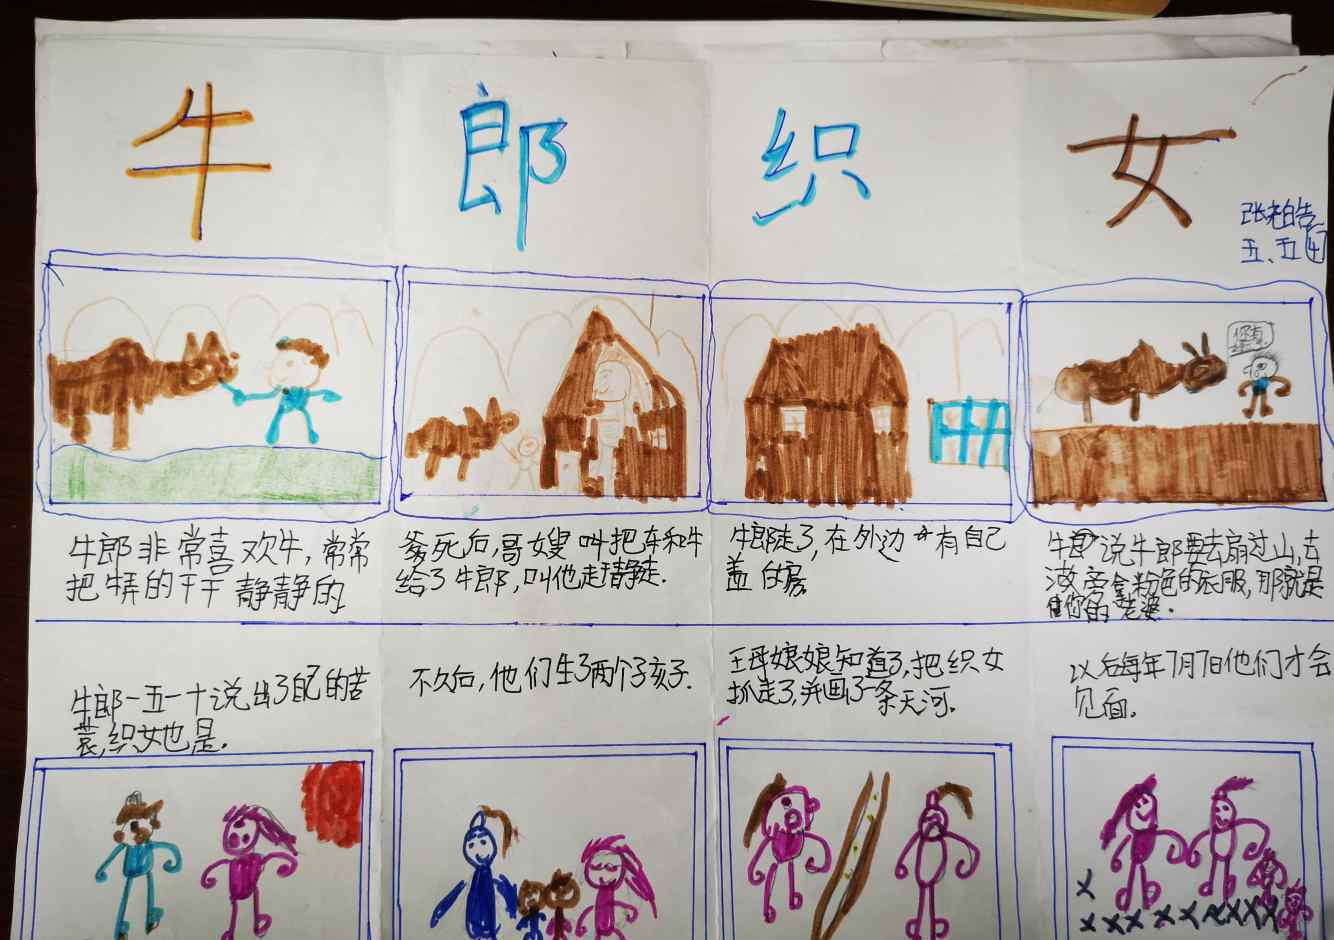 牛郎织女
张柏皓
五、五
牛郎非常喜欢牛,常常
把牛弄的干干静静的
爹死后,哥嫂叫把车和牛
给了牛郎,叫他走
牛郎走了,在外边有自己
盖房
牛说牛郎要去扇过山,去
拿粉色的衣服,那就是
你的老婆.
牛郎一五一十说出了自己的苦
衷,织女也是.
不久后,他们生了两个子孩子.
王母娘娘知道了,把织女
抓走了,并画了一条天河.
以后每年7月7日他们才会
见面.